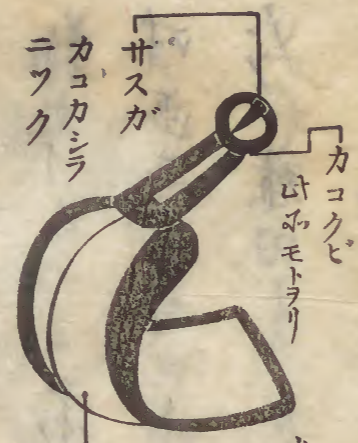 カコクビ
此所モトヲリ
サスガ
カコカシラ
ニツク